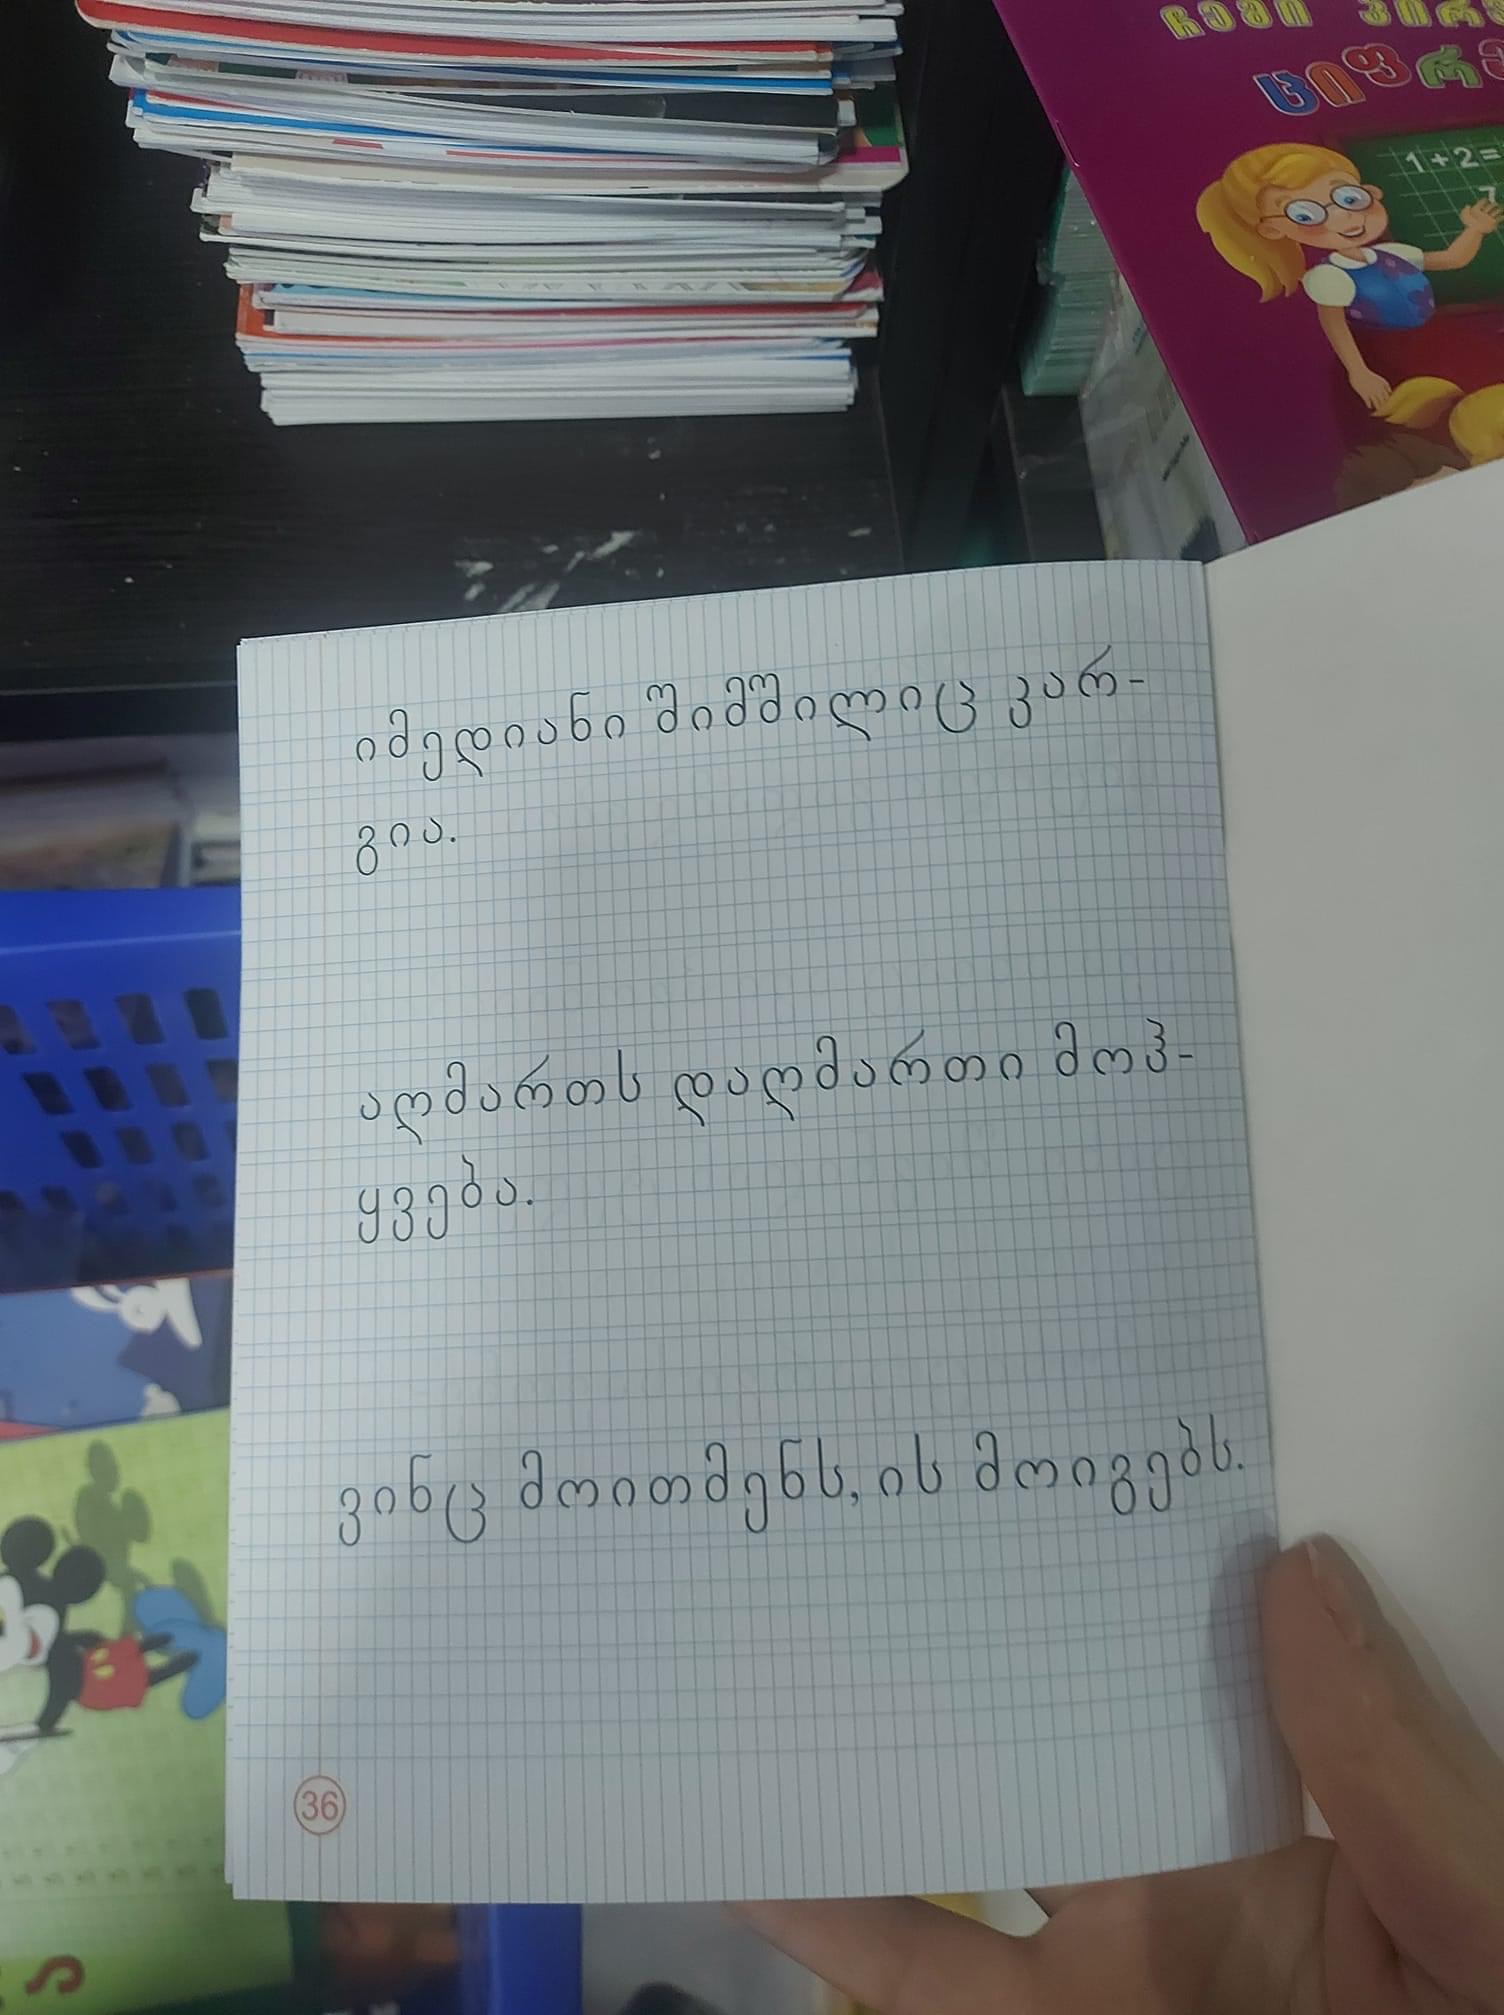 ჩემი
ციფრ
1+2=
7
იმედიანი შიმშილიც კარ-
გია.
აღმართს დაღმართი მოჰ-
ყვება.
ვინც მოითმენს, ის მოიგებს.
36
S